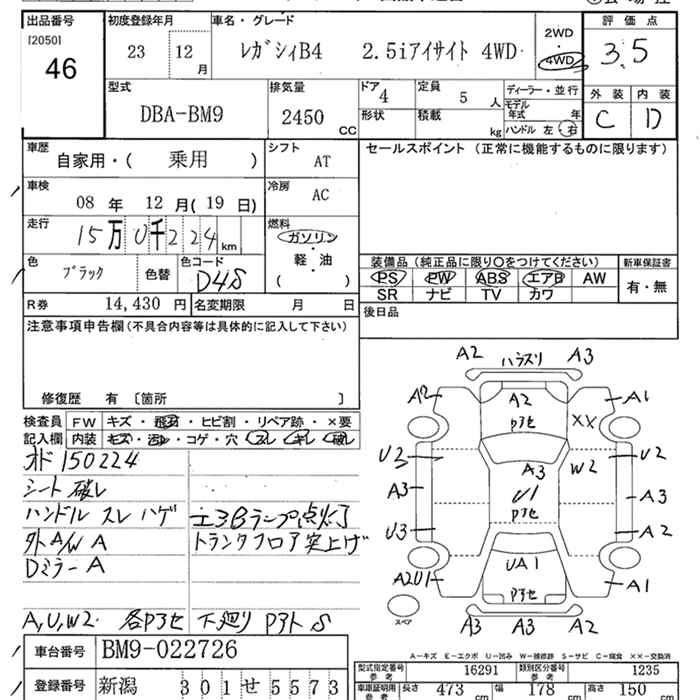 出品番号 初度登録年月 車名・グレード 評価点
[2050] 46
23 12月 レガシィB4 2.5iアイサイト 4WD 2WD・4WD 3.5
型式 DBA-BM9 排気量 2450 CC
ドア 4 定員 5 人 ディーラー・並行 外装 内装
形状 積載 kg モデル年式 年 ハンドル 左・右 C D
車歴 自家用・( 乗用 ) シフト AT セールスポイント (正常に機能するものに限ります)
車検 08 年 12 月( 19 日) 冷房 AC
走行 15万0千224km 燃料 ガソリン・軽・油 ( )
色 ブラック 色替 色コード D4S
装備品 (純正品に限り○をつけてください) 新車保証書
PS PW ABS エアB AW 有・無
SR ナビ TV カワ
R券 14,430 円 名変期限 月 日 後日品
注意事項申告欄(不具合内容等は具体的に記入して下さい)
修復歴 有 〔箇所 〕
検査員 FW キズ・飛石・ヒビ割・リペア跡・×要
記入欄 内装 モズ・汚レ・コゲ・穴・スレ・キレ・破レ
オド 150224
シート 破レ
ハンドル スレ ハゲ エアBランプ点灯
外A/W A トランクフロア突上げ
Dミラー A
A,U,W2 各Pアセ 下廻り Pアト S
A2 ハラスリ A3
A2 A2 Pアセ A1
XX
U2 A3 W2 U2
A3 U1 Pアセ A3
U3 A2
A2U1 UA1 A1
Pアセ
スペア A3 A3 A3
A-キズ E-エクボ U-凹 W-補修跡 S-サビ C-腐食 XX-交換済
車台番号 BM9-022726
型式指定番号 参考 16291 類別区分番号 参考 1235
登録番号 新潟 301 せ 5573
車庫証明用 参考 長さ 473 cm 幅 178 cm 高さ 150 cm